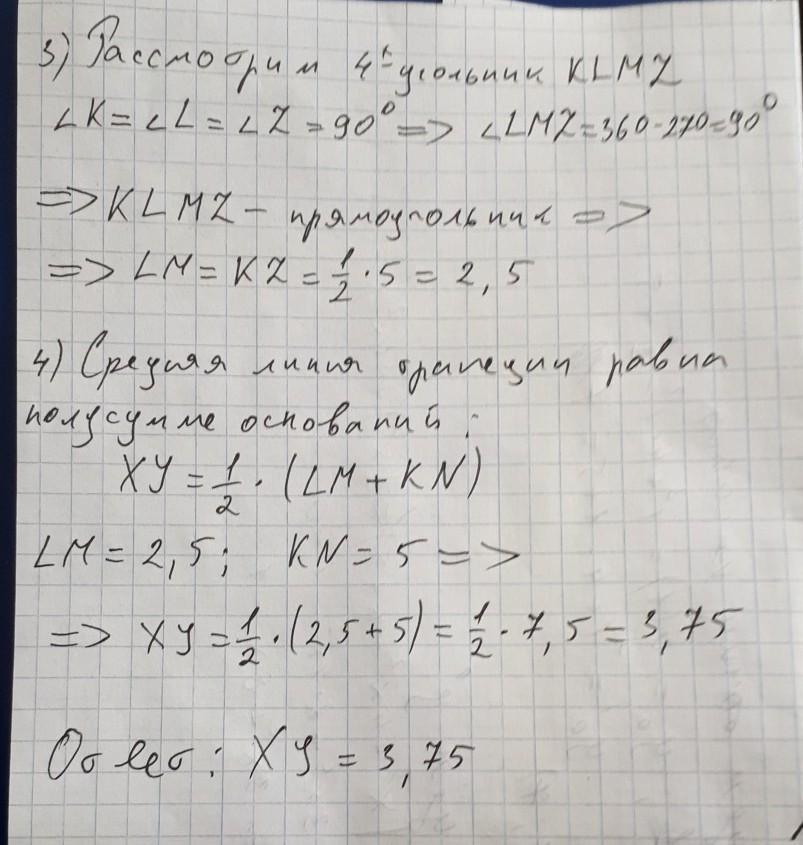 3) Рассмотрим 4-угольник KLMZ
∠K = ∠L = ∠Z = 90° => ∠LMZ = 360 - 270 = 90°
=> KLMZ – прямоугольник =>
=> LM = KZ = 1/2 · 5 = 2,5
4) Средняя линия трапеции равна
полусумме оснований:
XY = 1/2 · (LM + KN)
LM = 2,5; KN = 5 =>
=> XY = 1/2 · (2,5 + 5) = 1/2 · 7,5 = 3,75
Ответ: XY = 3,75